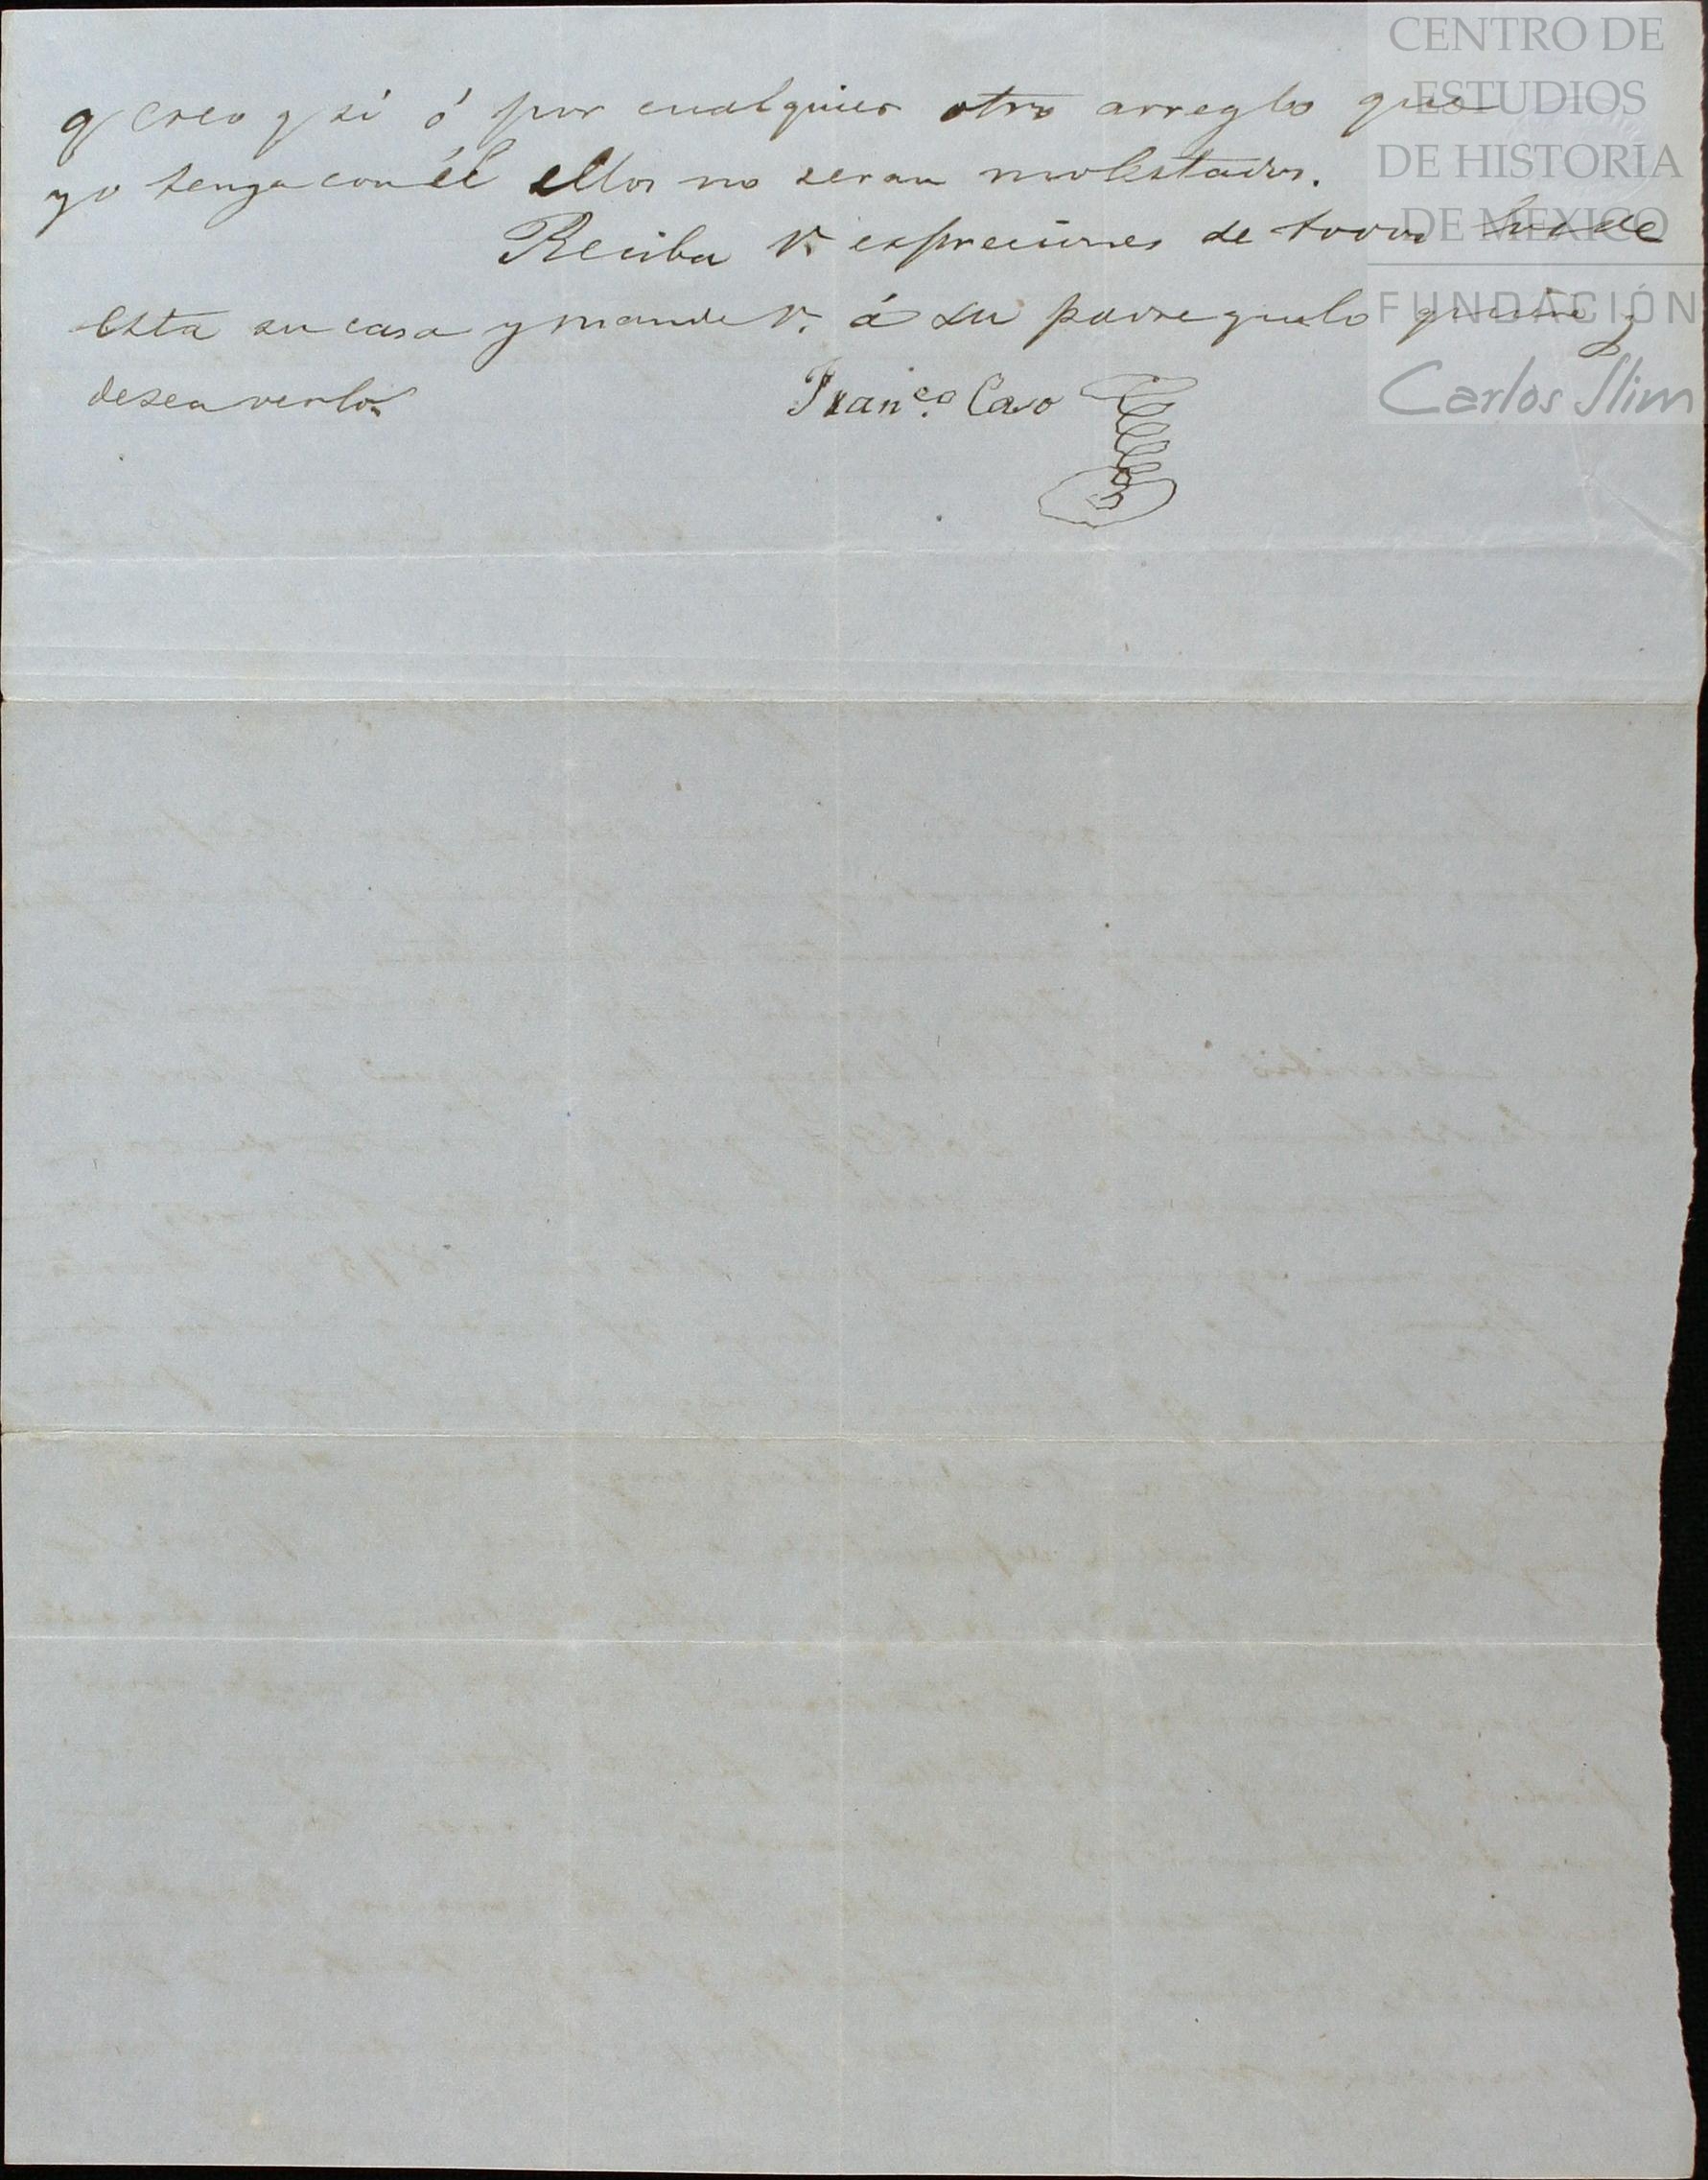 q creo q si ó por cualquier otro arreglo que
yo tenga con él ellos no seran molestados.
Reciba V. espreciones de todos los de
esta su casa y mande V. á su  quiere y
desea verlo.
Franco. Caso
CENTRO DE
ESTUDIOS
DE HISTORIA
DE MEXICO
FUNDACIÓN
Carlos Slim